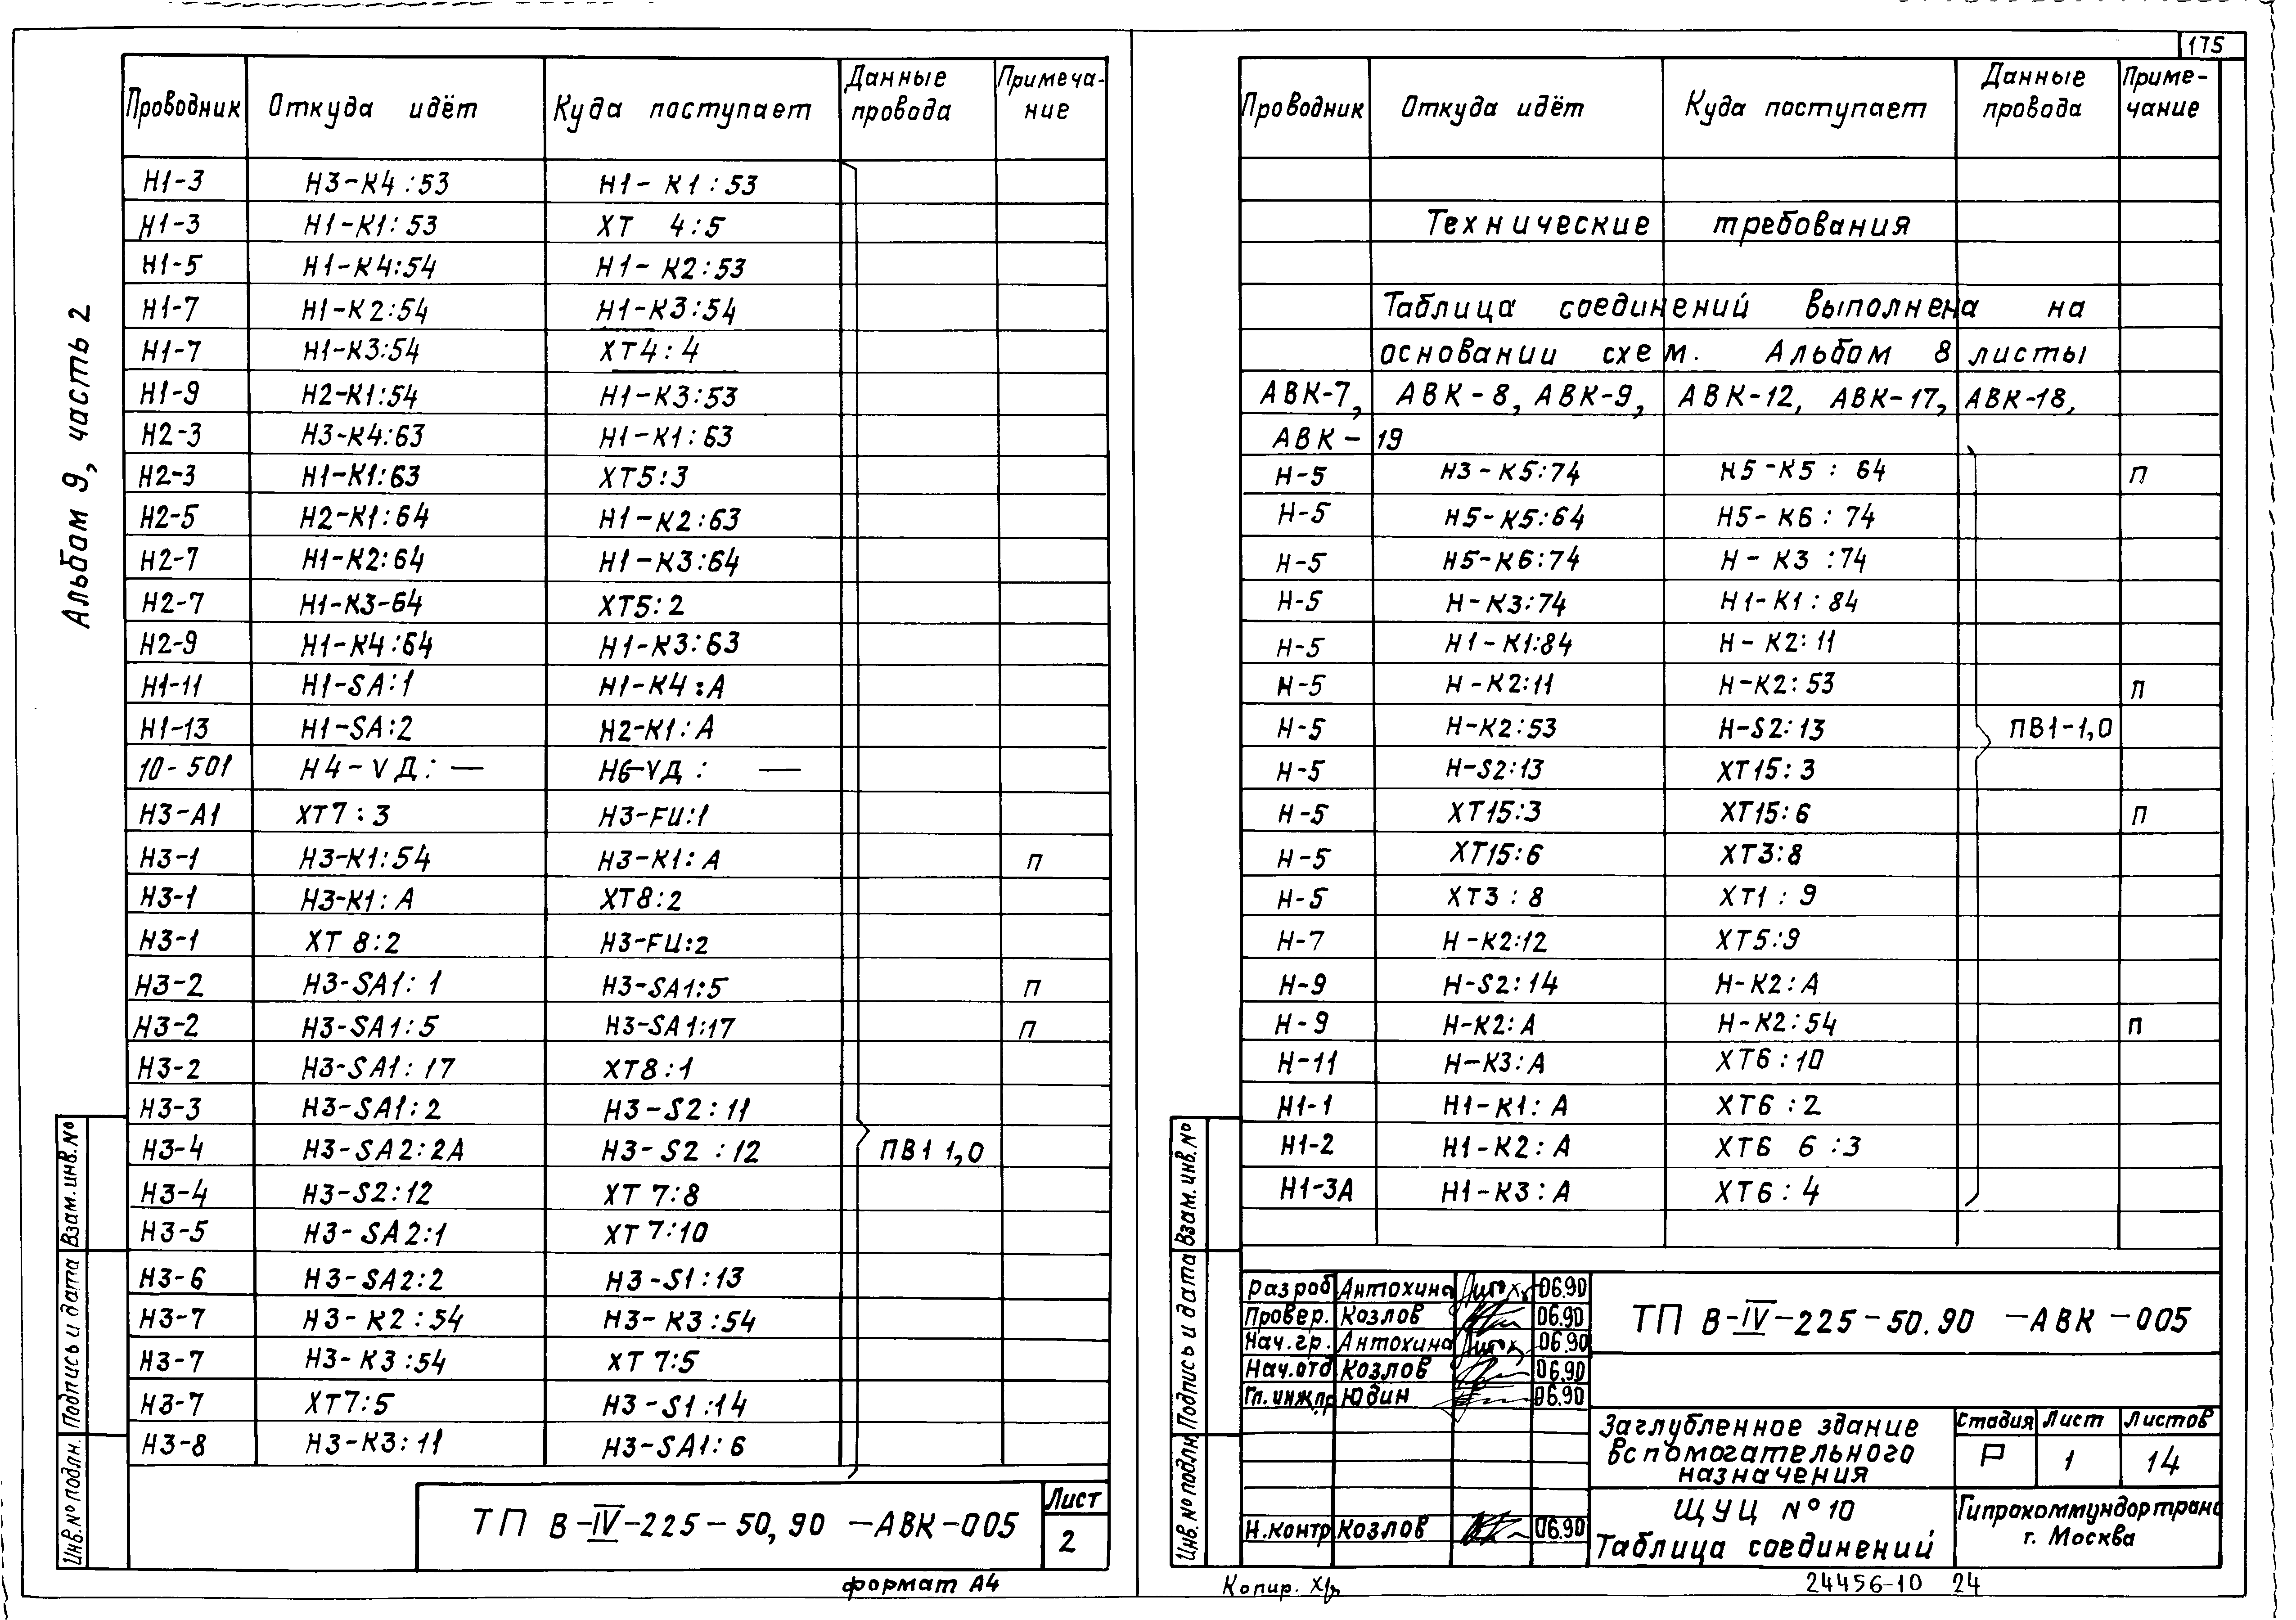 175
Альбом 9, часть 2
Проводник Откуда идёт Куда поступает Данные провода Примеча-ние
Н1-3 Н3-К4:53 Н1-К1:53
Н1-3 Н1-К1:53 ХТ 4:5
Н1-5 Н1-К4:54 Н1-К2:53
Н1-7 Н1-К2:54 Н1-К3:54
Н1-7 Н1-К3:54 ХТ4:4
Н1-9 Н2-К1:54 Н1-К3:53
Н2-3 Н3-К4:63 Н1-К1:63
Н2-3 Н1-К1:63 ХТ5:3
Н2-5 Н2-К1:64 Н1-К2:63
Н2-7 Н1-К2:64 Н1-К3:64
Н2-7 Н1-К3-64 ХТ5:2
Н2-9 Н1-К4:64 Н1-К3:63
Н1-11 Н1-SA:1 Н1-К4:А
Н1-13 Н1-SA:2 Н2-К1:А
10-501 Н4-VД: — Н6-VД: —
Н3-А1 ХТ7:3 Н3-FU:1
Н3-1 Н3-К1:54 Н3-К1:А п
Н3-1 Н3-К1:А ХТ8:2
Н3-1 ХТ 8:2 Н3-FU:2
Н3-2 Н3-SA1:1 Н3-SA1:5 п
Н3-2 Н3-SA1:5 Н3-SA1:17 п
Н3-2 Н3-SA1:17 ХТ8:1
Н3-3 Н3-SA1:2 Н3-S2:11
Н3-4 Н3-SA2:2А Н3-S2:12 ПВ1 1,0
Н3-4 Н3-S2:12 ХТ 7:8
Н3-5 Н3-SA2:1 ХТ 7:10
Н3-6 Н3-SA2:2 Н3-S1:13
Н3-7 Н3-К2:54 Н3-К3:54
Н3-7 Н3-К3:54 ХТ 7:5
Н3-7 ХТ7:5 Н3-S1:14
Н3-8 Н3-К3:11 Н3-SA1:6
Взам. инв. №
Подпись и дата
Инв. № подлн.
ТП В-IV-225-50,90 -АВК-005
Лист
2
формат А4
Проводник Откуда идёт Куда поступает Данные провода Приме-чание
Технические требования
Таблица соединений выполнена на
основании схем. Альбом 8 листы
АВК-7, АВК-8, АВК-9, АВК-12, АВК-17, АВК-18,
АВК-19
Н-5 Н3-К5:74 Н5-К5:64 п
Н-5 Н5-К5:64 Н5-К6:74
Н-5 Н5-К6:74 Н-К3:74
Н-5 Н-К3:74 Н1-К1:84
Н-5 Н1-К1:84 Н-К2:11
Н-5 Н-К2:11 Н-К2:53 п
Н-5 Н-К2:53 Н-S2:13 ПВ1-1,0
Н-5 Н-S2:13 ХТ15:3
Н-5 ХТ15:3 ХТ15:6 п
Н-5 ХТ15:6 ХТ3:8
Н-5 ХТ3:8 ХТ1:9
Н-7 Н-К2:12 ХТ5:9
Н-9 Н-S2:14 Н-К2:А
Н-9 Н-К2:А Н-К2:54 п
Н-11 Н-К3:А ХТ6:10
Н1-1 Н1-К1:А ХТ6:2
Н1-2 Н1-К2:А ХТ6 6:3
Н1-3А Н1-К3:А ХТ6:4
Взам. инв. №
Подпись и дата
Инв. № подлн.
разраб Антохина 06.90
Провер. Козлов 06.90
Нач. гр. Антохина 06.90
Нач. отд Козлов 06.90
Гл. инж.пр Юдин 06.90
Н. контр Козлов 06.90
ТП В-IV-225-50.90 -АВК-005
Заглубленное здание
вспомогательного
назначения
Стадия Лист Листов
Р 1 14
ЩУЦ №10
Таблица соединений
Гипрокоммундортранс
г. Москва
Копир.
24456-10 24